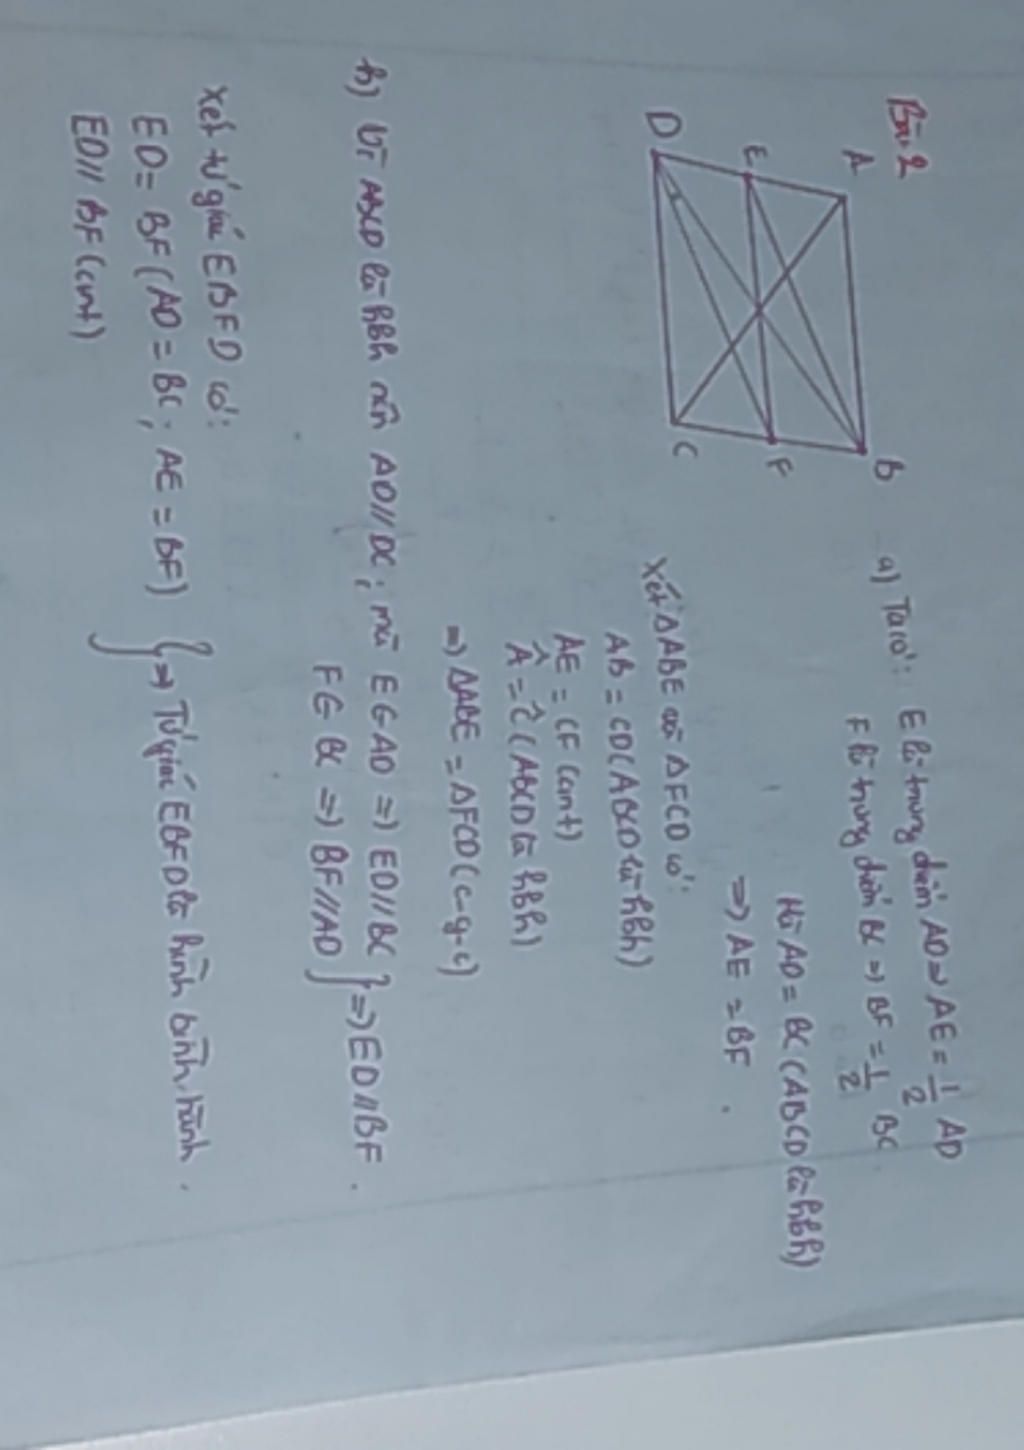 Bài 2
A
B
E
F
D
C
a) Ta có: E là trung điểm AD => AE = 1/2 AD
F là trung điểm BC => BF = 1/2 BC
Mà AD = BC (ABCD là hbh)
=> AE = BF
Xét ΔABE và ΔFCD có:
AB = CD (ABCD là hbh)
AE = CF (cmt)
Â = Ĉ (ABCD là hbh)
=> ΔABE = ΔFCD (c-g-c)
b) Vì ABCD là hbh nên AD // DC; mà E ∈ AD => ED // BC
F ∈ BC => BF // AD
} => ED // BF
Xét tứ giác EBFD có:
ED = BF (AD = BC; AE = BF)
ED // BF (cmt)
} => Tứ giác EBFD là hình bình hành.